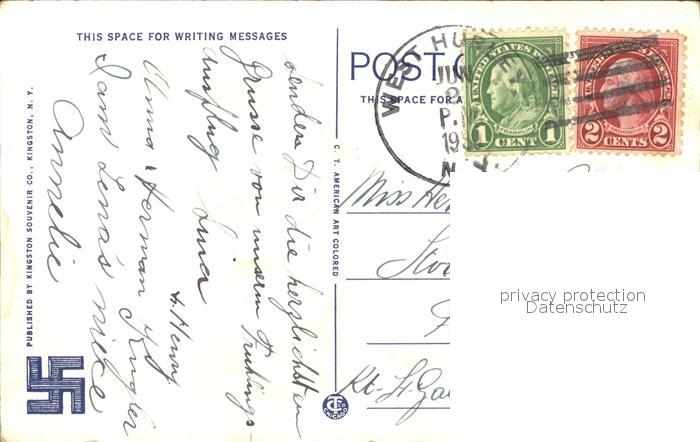 THIS SPACE FOR WRITING MESSAGES
senden Dir die herzlichsten
Grüsse von unserm Frühlings-
ausflug Lina
& Henry
Anna & Herman Kugler
I am Lena's niece
Annelie
PUBLISHED BY KINGSTON SOUVENIR CO., KINGSTON, N. Y.
C. T. AMERICAN ART COLORED
POST
THIS SPACE FOR A
WEST HURLEY
JUN
2
P.
19
N.Y.
UNITED STATES POSTAGE
FRANKLIN
1 CENT 1
UNITED STATES POSTAGE
2 CENTS 2
Miss He
Kt. St. Ga
CHICAGO
privacy protection
Datenschutz